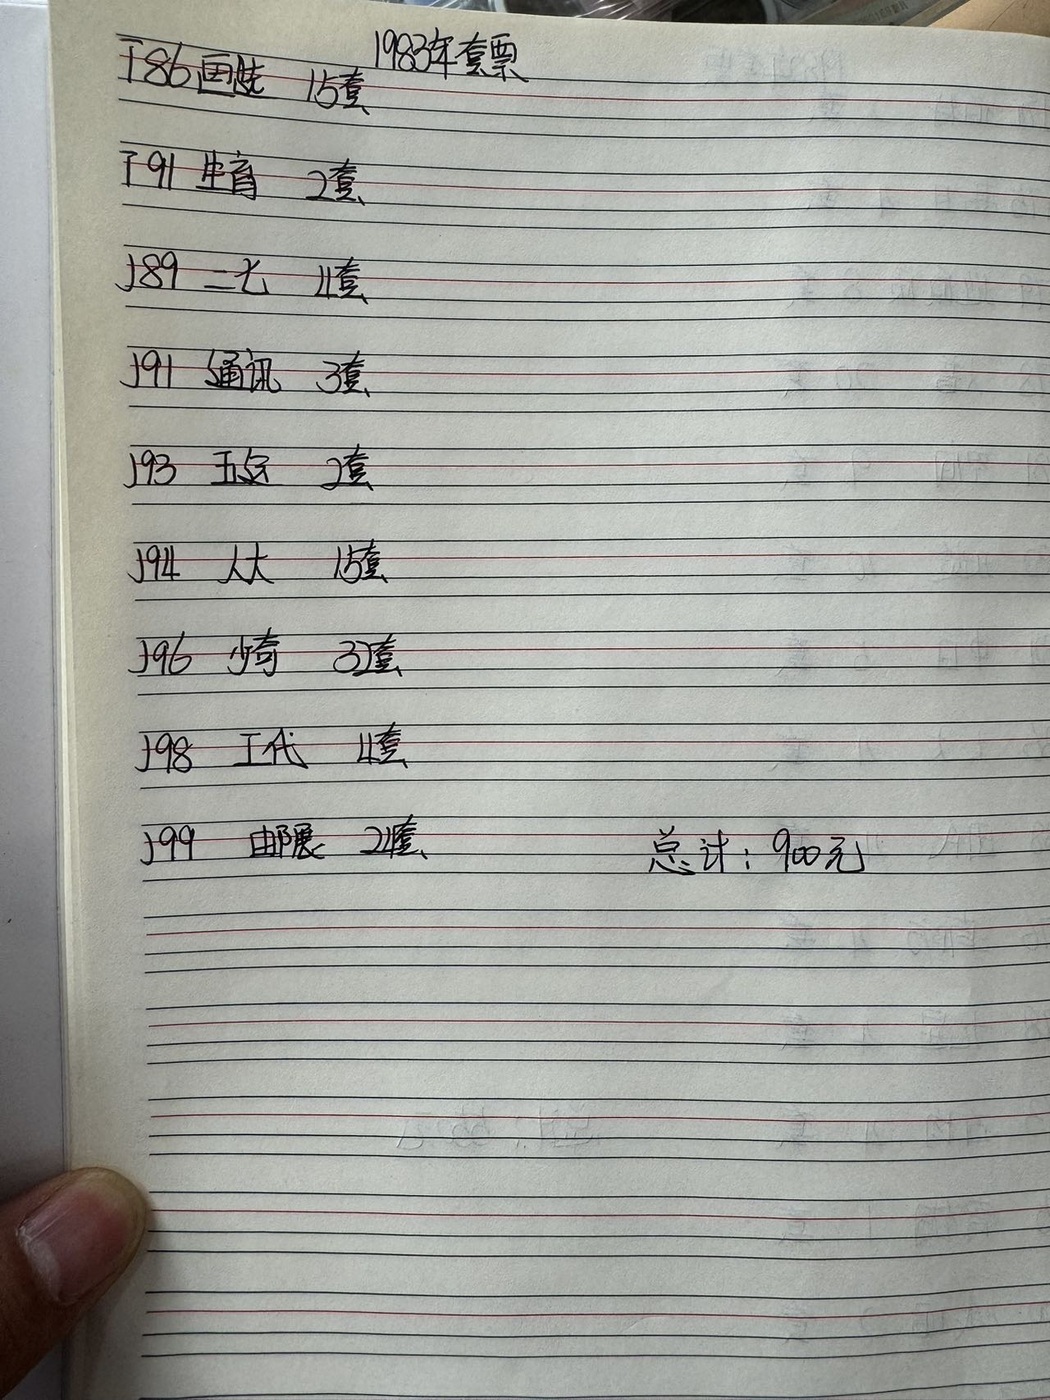 1983年套票
T86 画 15套
T91 生育 2套
J89 二七 4套
J91 通讯 3套
J93 五 2套
J94 人大 15套
J96 少奇 32套
J98 工代 4套
J99 邮展 24套 总计：900元